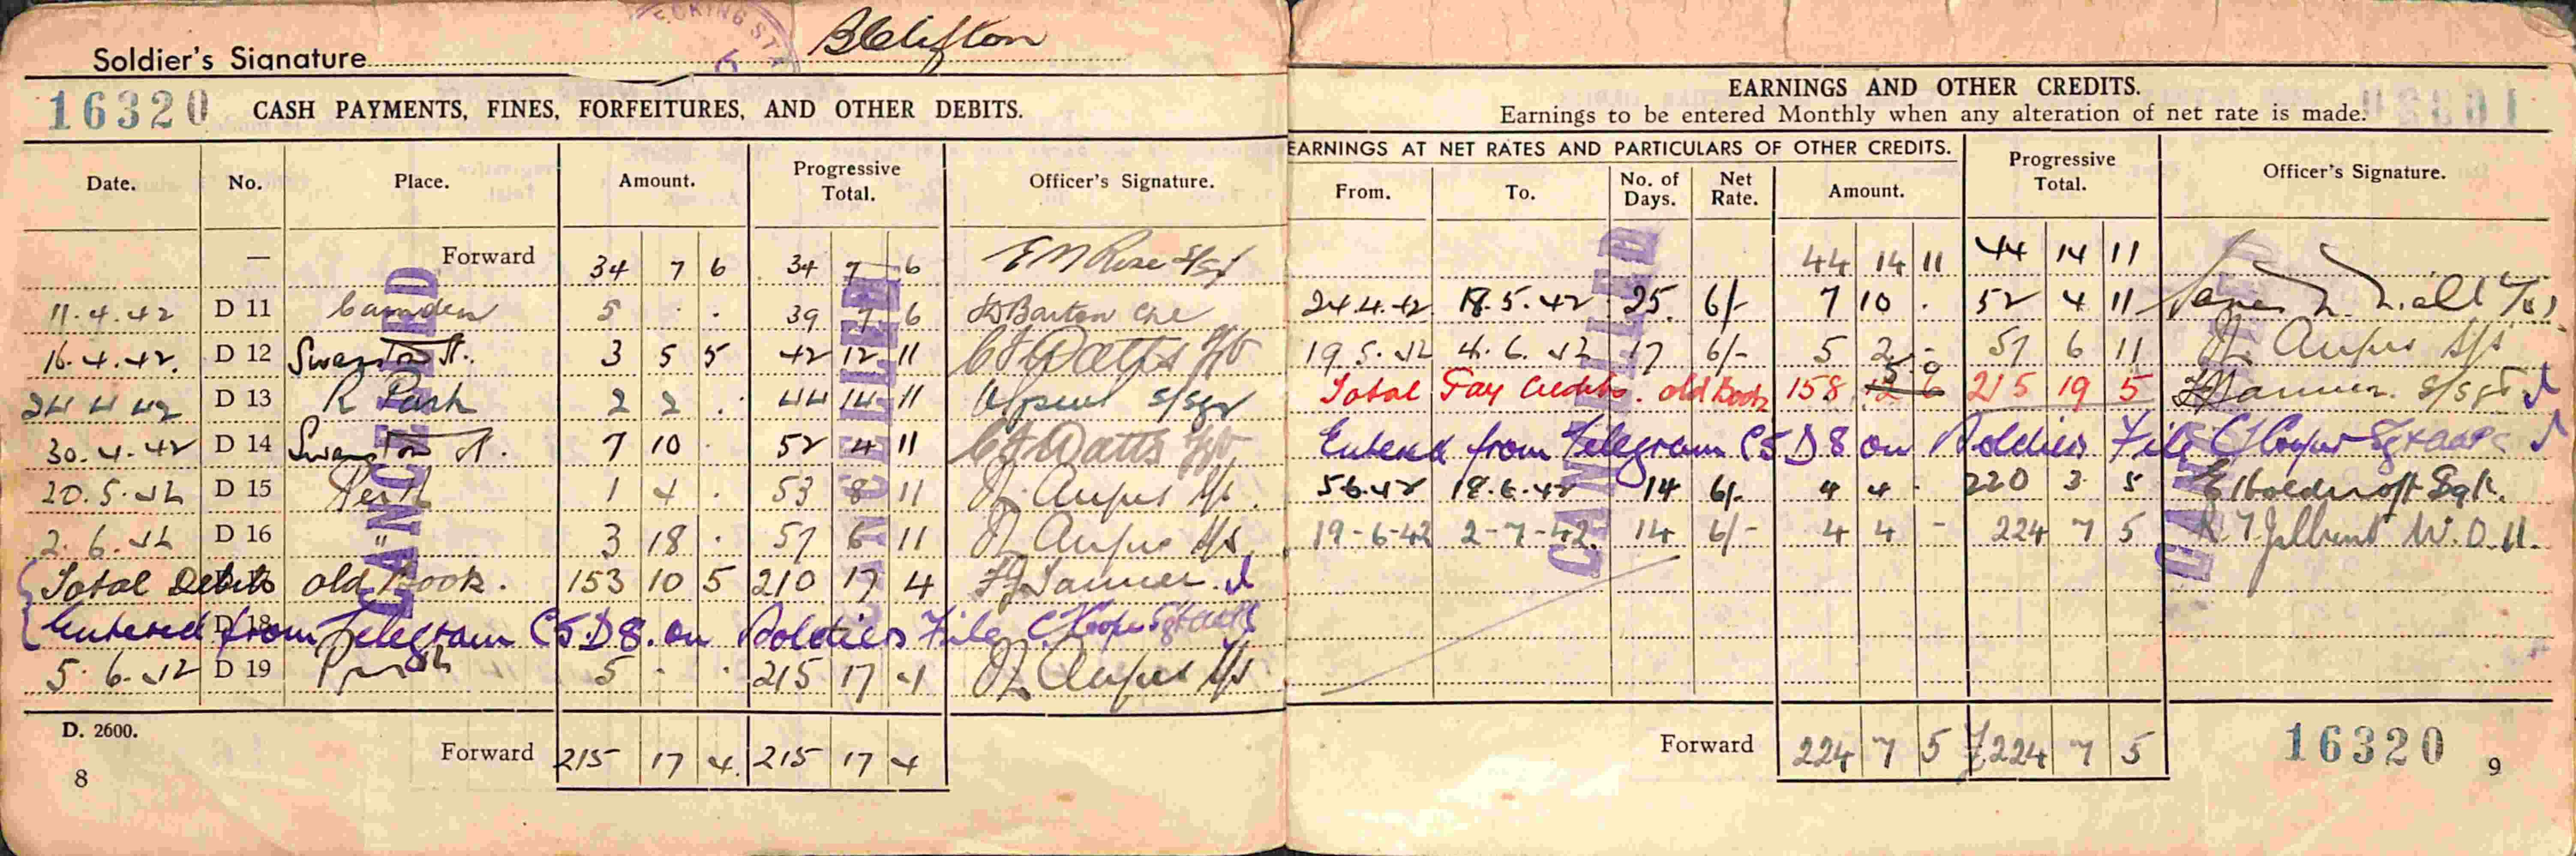 Soldier's Signature B Clifton
16320 CASH PAYMENTS, FINES, FORFEITURES, AND OTHER DEBITS.
Date. No. Place. Amount. Progressive Total. Officer's Signature.
— Forward 34 7 6 34 7 6 E M Rose S/Sgt
11.4.42 D 11 Camden 5 . . 39 7 6 Barton
16.4.42. D 12 Swanston St. 3 5 5 42 12 11 Watts
24 4 42 D 13 R Park 2 2 . 44 14 11 S/Sgt
30.4.42 D 14 Swanston St. 7 10 . 52 4 11 Watts
20.5.42 D 15 Perth 1 4 . 53 8 11 Angus S/S
2.6.42 D 16 3 18 . 57 6 11 Angus S/S
Total Debits old Book. 153 10 5 210 17 4 Tanner
Entered from Telegram C5.D8. on Soldiers File C Hooper Sgt AAPC
D 18
5.6.42 D 19 5 . . 215 17 4 Angus S/S
Forward 215 17 4. 215 17 4
D. 2600.
8
CANCELLED
CANCELLED
EARNINGS AND OTHER CREDITS.
Earnings to be entered Monthly when any alteration of net rate is made.
EARNINGS AT NET RATES AND PARTICULARS OF OTHER CREDITS. Progressive Total. Officer's Signature.
From. To. No. of Days. Net Rate. Amount.
44 14 11 44 14 11
24.4.42 18.5.42 25. 6/- 7 10 . 52 4 11
19.5.42 4.6.42 17 6/- 5 2 - 57 6 11 Angus S/S
Total Pay Credits. old Book 158 12 6 215 19 5 Tanner. S/Sgt
Entered from Telegram C5D8 on Soldiers File C Hooper Sgt AAPC
5.6.42 18.6.42 14 6/- 4 4 - 220 3 5 Holdcroft Sgt.
19-6-42 2-7-42. 14 6/- 4 4 - 224 7 5 W.O.II.
Forward 224 7 5 £224 7 5
16320
9
CANCELLED
CANCELLED